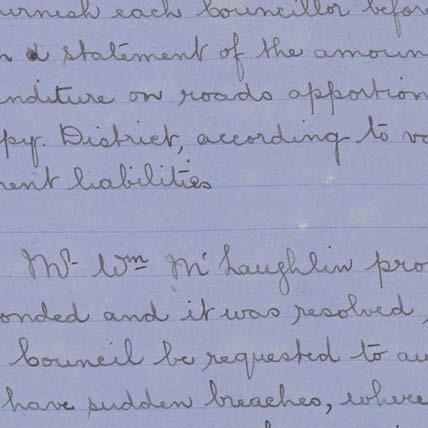 urnish each Councillor before
a statement of the amoun
nditure on roads apportion
py. District, according to va
ent liabilities
Mr. Wm McLaughlin pro
onded and it was resolved,
Council be requested to au
have sudden breaches, where